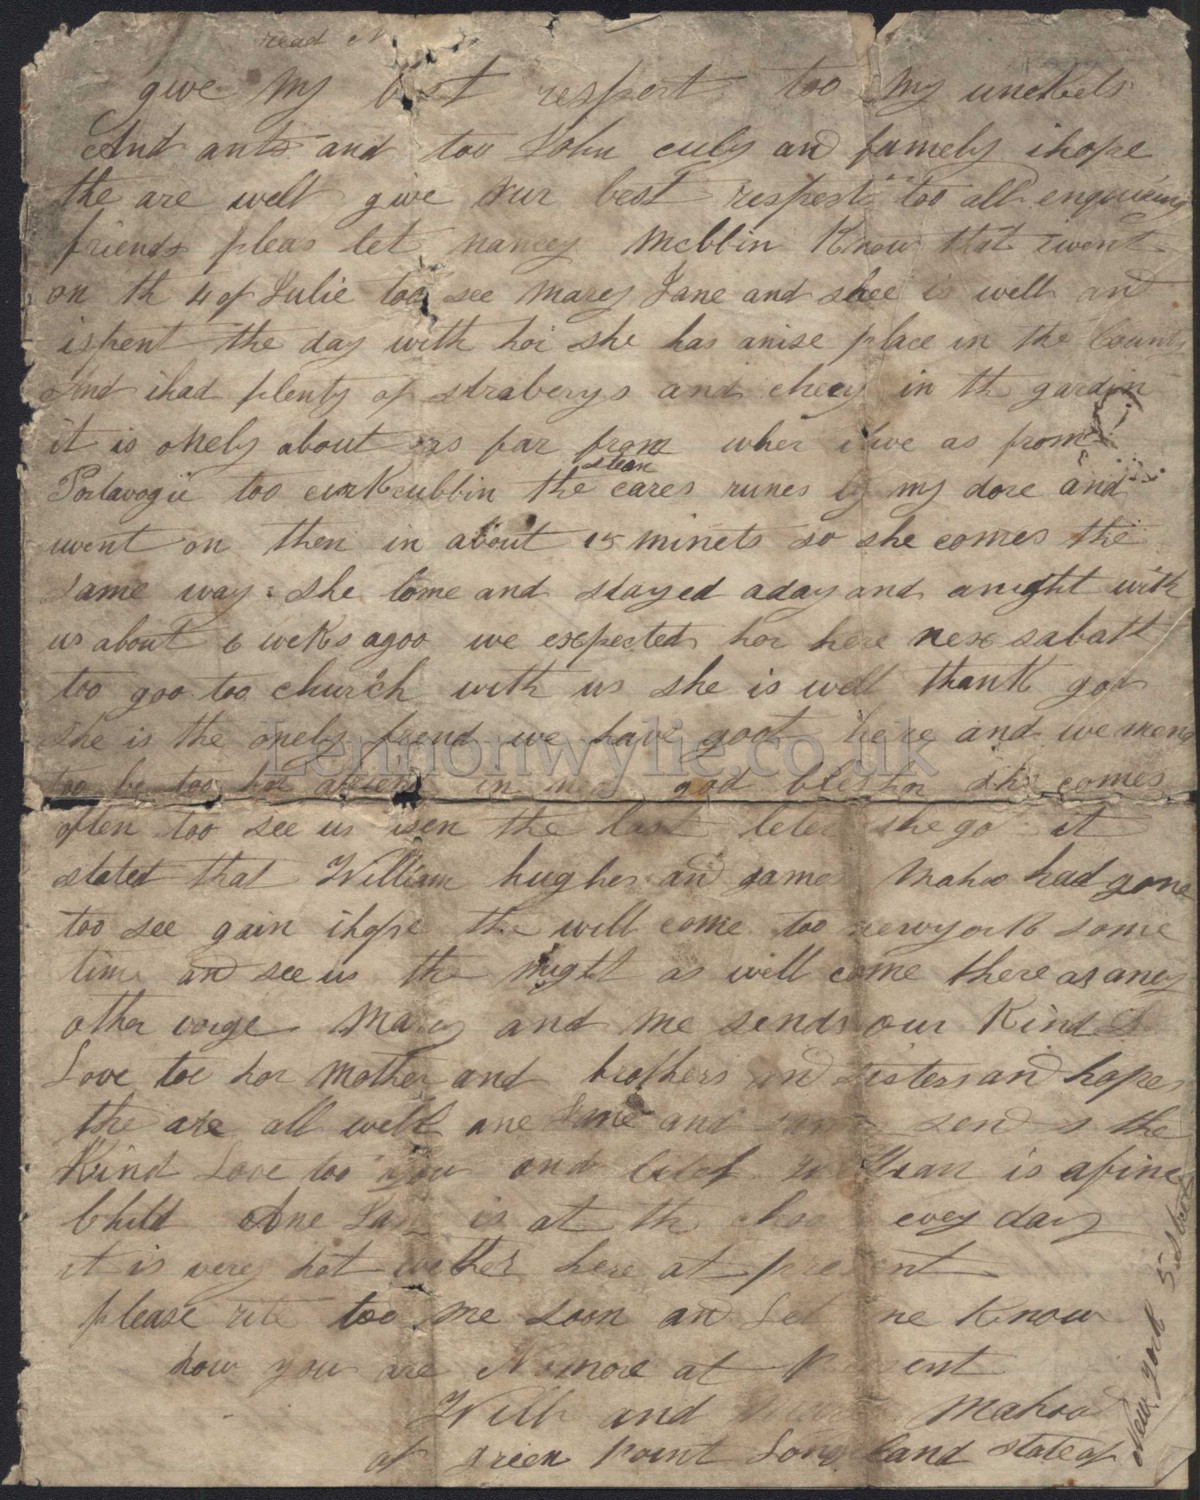 read
give My best respect too My unckels
And ants and too John culy and famely ihope
the are well give our best respects too all enquiring
friends pleas let nancy Mcbbin Know that iwent
on th 4 of Julie too see marey Jane and shee is well and
ispent the day with hor she has anise place in the County
And ihad plenty of straberys and chery in th gardin
it is onely about as far from wher ilive as from
Portavogie too curKcubbin the stean cares runes by my dore and
went on then in about 15 minets so she comes the
same way she come and stayed aday and anight with
us about 6 weKs agoo we expected hor here nex sabath
too goo too church with us she is well thank god
she is the onely frend we have goot here and we mene
too be too hor in god bles hor she comes
often too see us wen the last leter she got it
stated that William hughes and James Mahoo had gone
too see gain ihope the will come too newyorK some
time and see us the might as well come there as aney
other Marey and me sends our Kind
Love too hor Mother and brothers and sisters and hopes
the are all well ane Jane and sends the
Kind Love too you and litel William is afine
Child Ane Jane is at the evey day
it is verey hot wether here at present
please rite too me soon and Let me Know
how you are Nomore at Present
Will and Mahood
of Green Point Long island state of
New York 5 street
Lennonwylie.co.uk